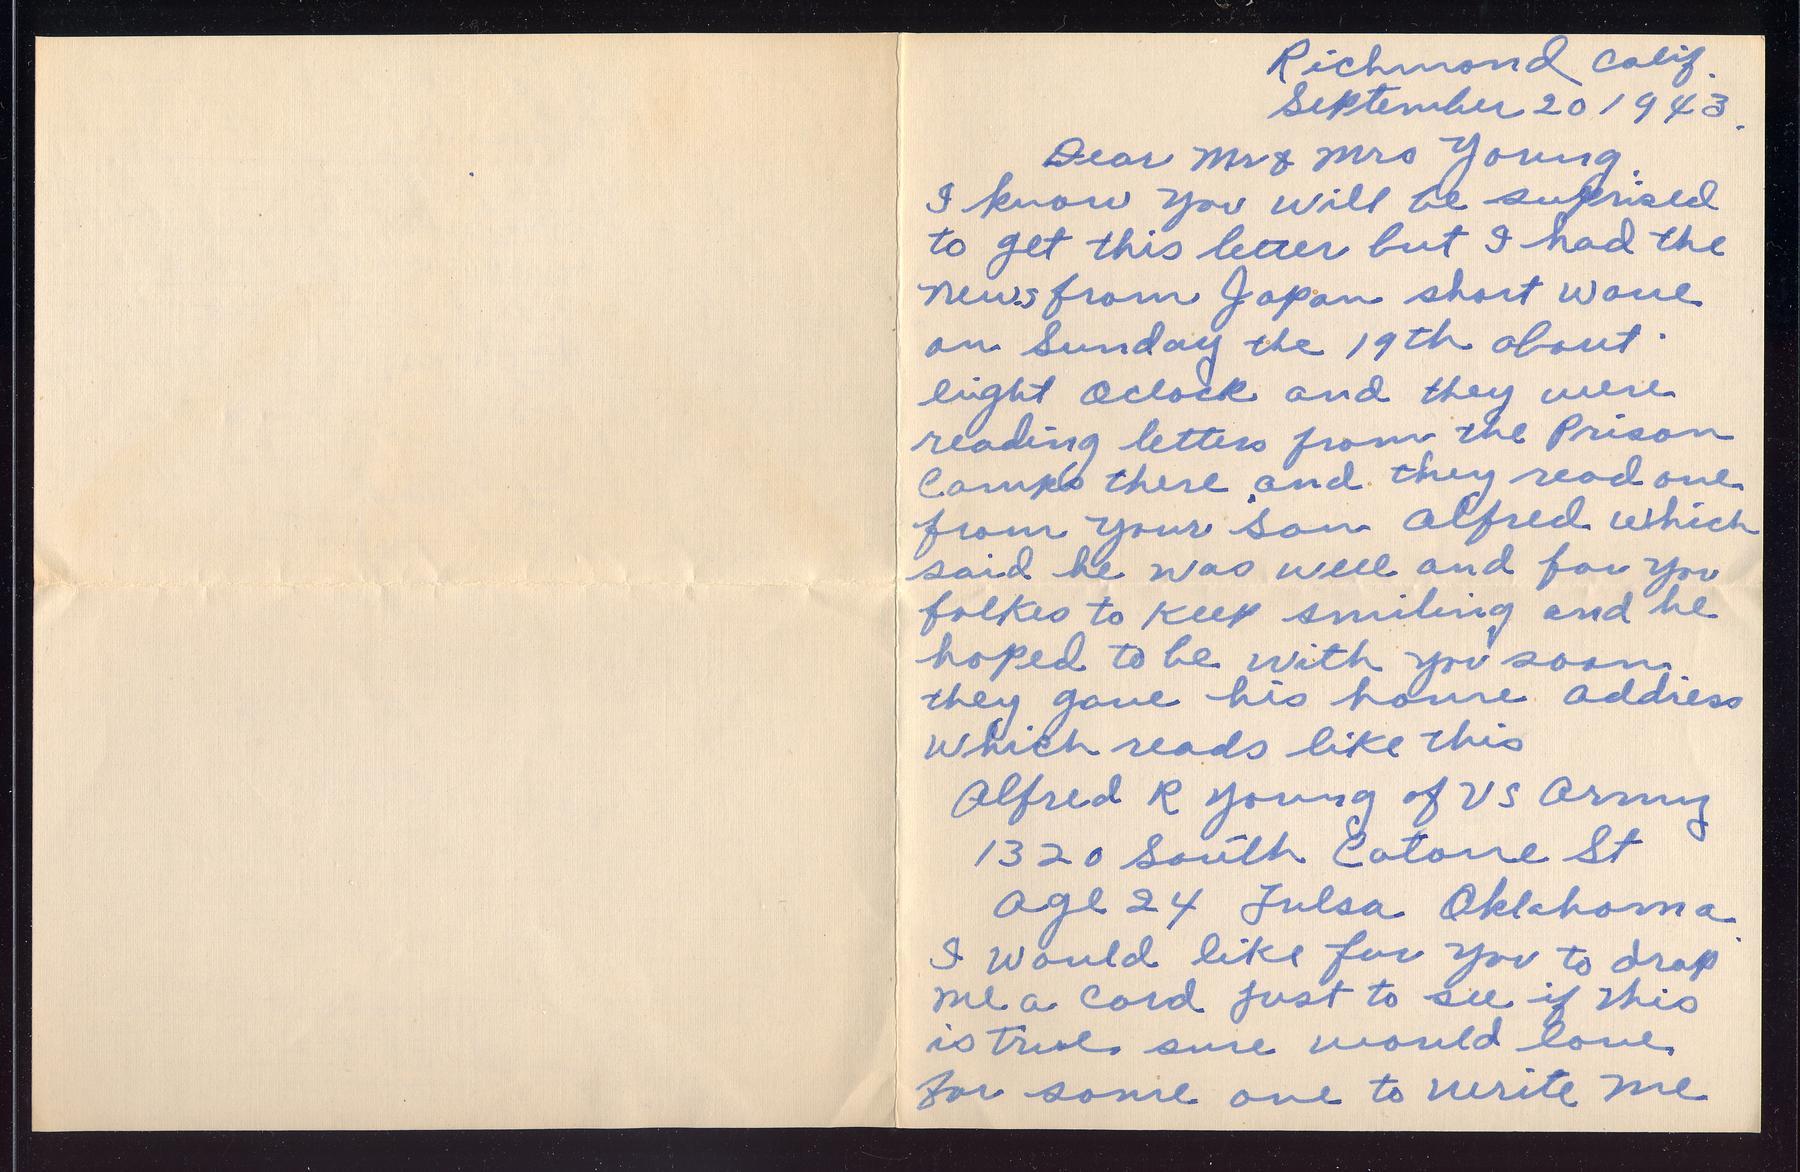 Richmond Calif.
September 20 1943.
Dear Mr & Mrs Young.
I know you will be suprised
to get this letter but I had the
news from Japan short wave
on Sunday the 19th about
eight Oclock and they were
reading letters from the Prison
Camps there and they read one
from your son Alfred which
said he was well and for you
folkes to keep smiling and he
hoped to be with you soon
they gave his home address
which reads like this
Alfred R Young of US Army
1320 South Catone St
age 24 Tulsa Oklahoma
I would like for you to drop
me a card just to see if this
is true. sure would love
for some one to write me